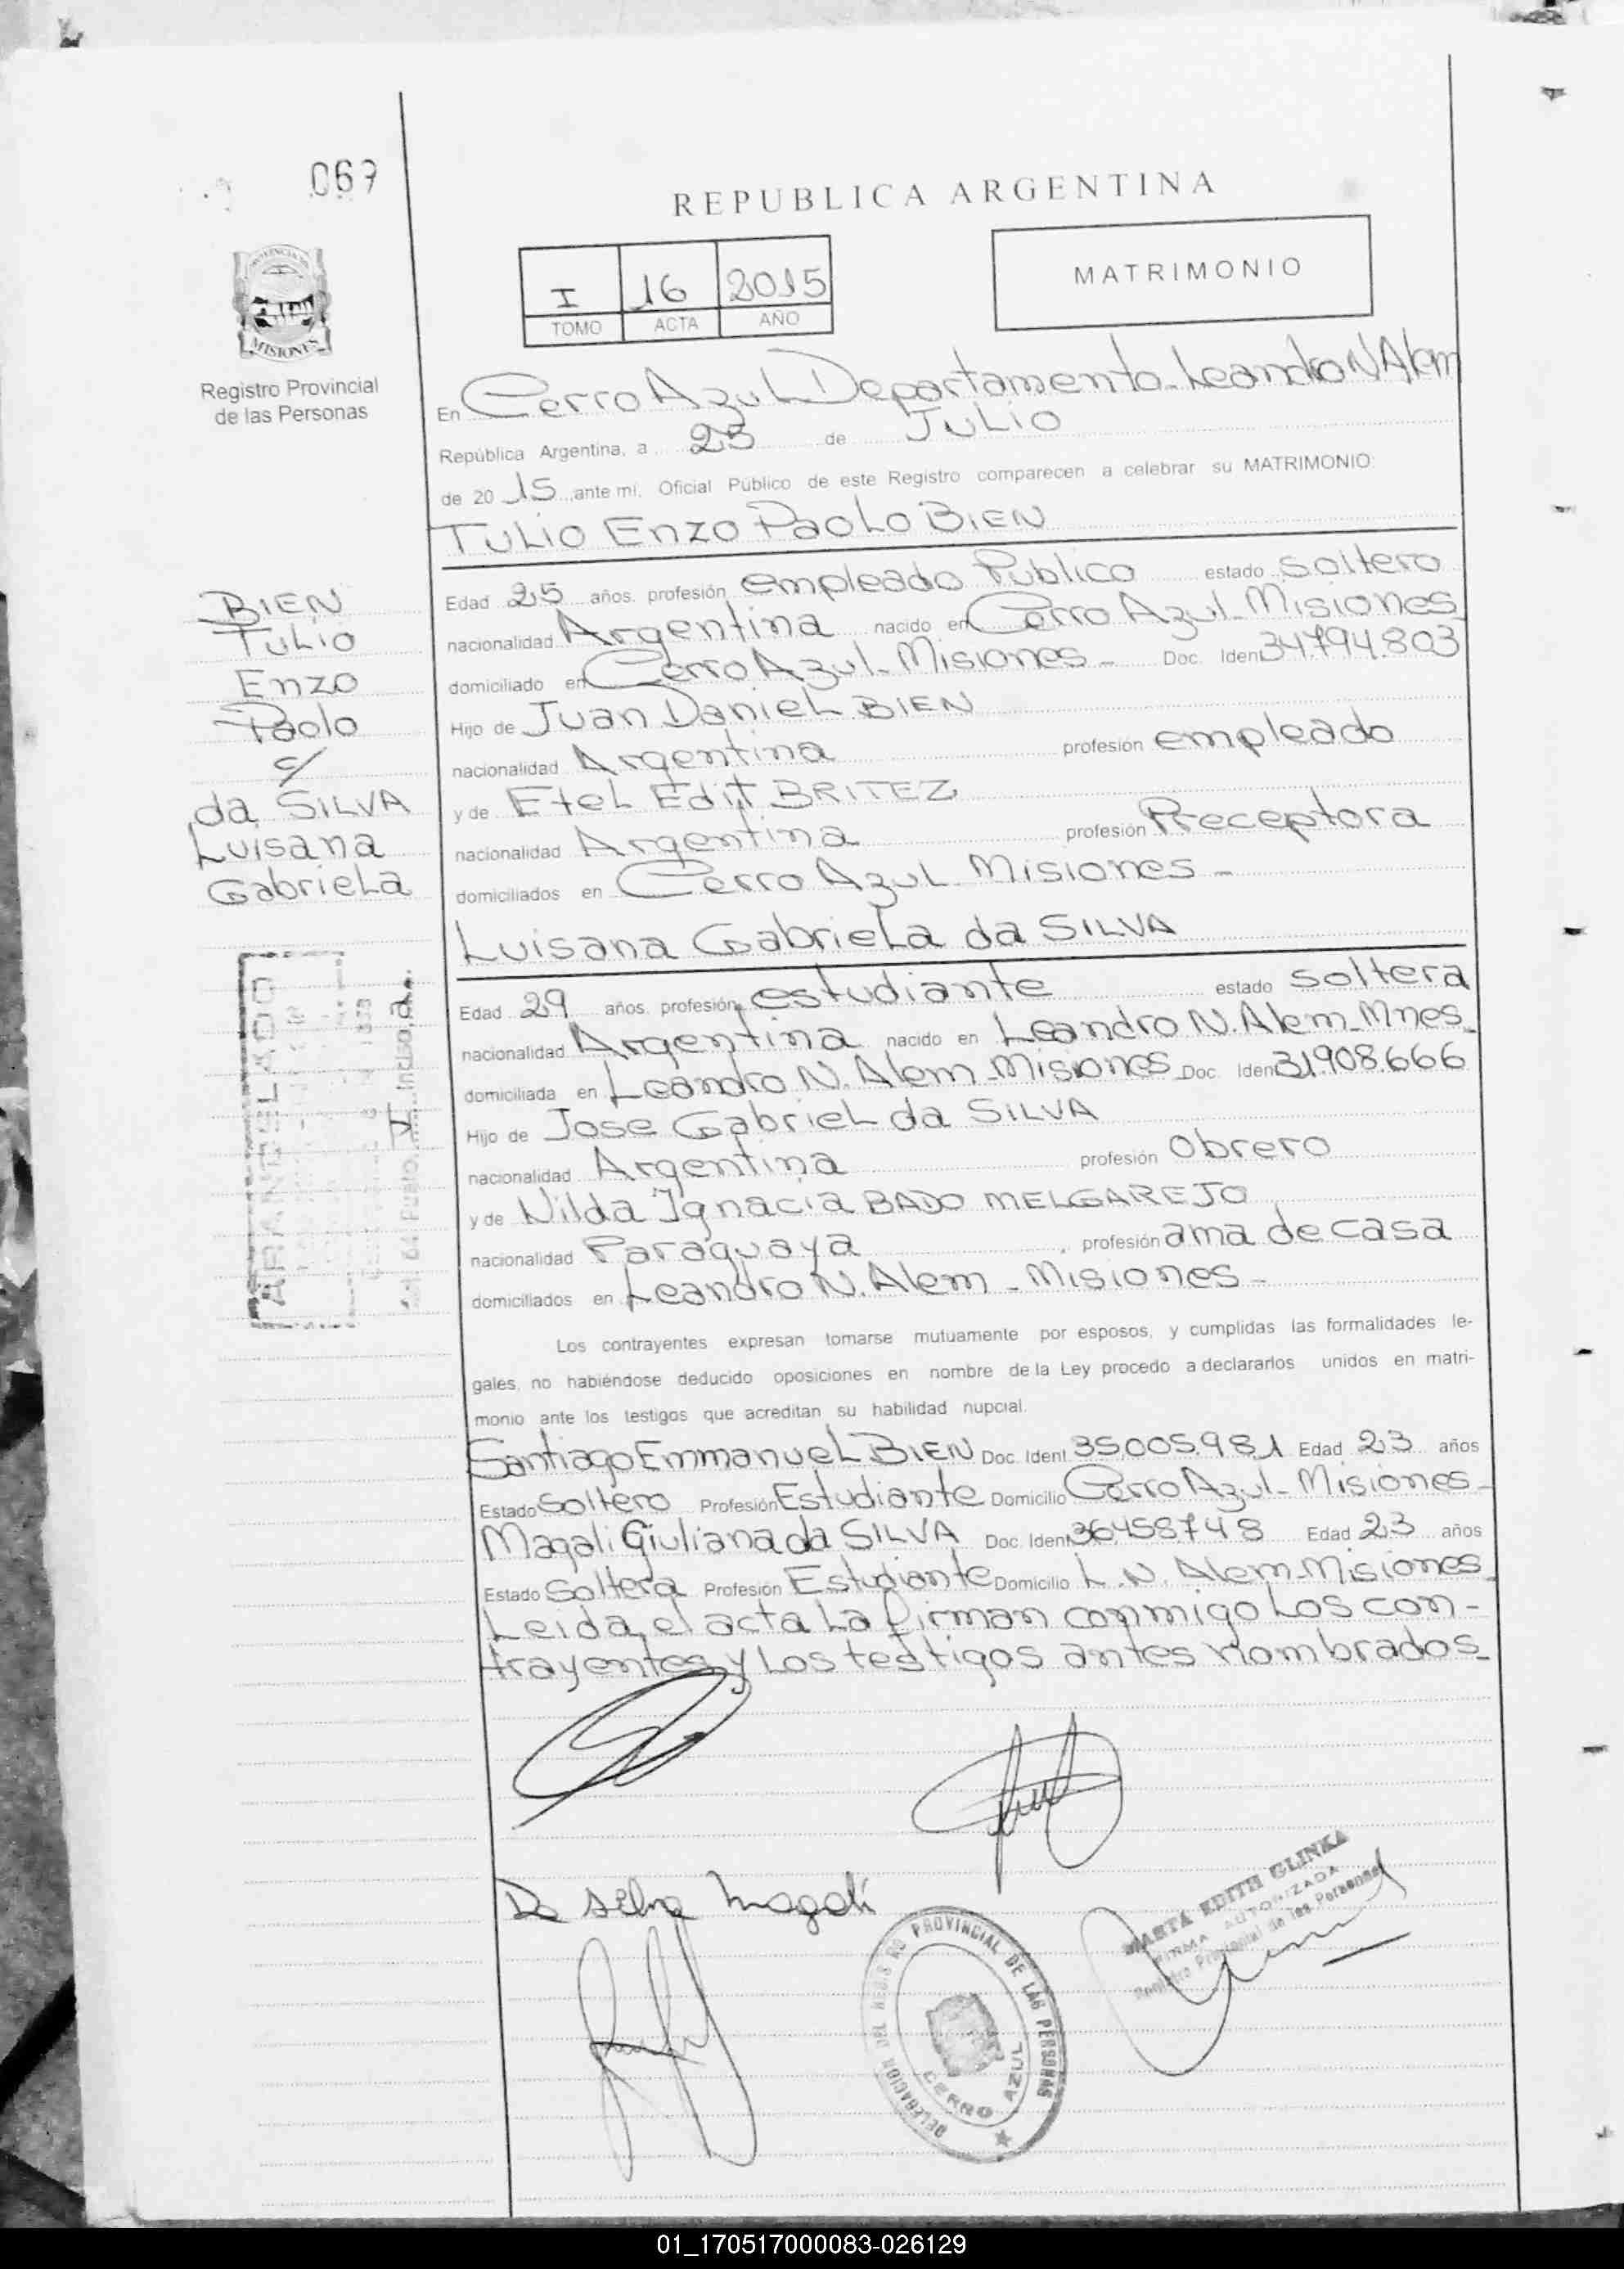 067
REPUBLICA ARGENTINA
I 16 2015
TOMO ACTA AÑO
MATRIMONIO
MISIONES
Registro Provincial
de las Personas
En Cerro Azul Departamento Leandro N Alem
República Argentina, a 23 de Julio
de 2015, ante mí, Oficial Público de este Registro comparecen a celebrar su MATRIMONIO:
Tulio Enzo Paolo BIEN
Edad 25 años. profesión empleado Publico estado soltero
nacionalidad Argentina nacido en Cerro Azul-Misiones
domiciliado en Cerro Azul-Misiones- Doc. Iden 34.794.803
Hijo de Juan Daniel BIEN
nacionalidad Argentina profesión empleado
y de Etel Edit BRITEZ
nacionalidad Argentina profesión Preceptora
domiciliados en Cerro Azul Misiones-
BIEN
Tulio
Enzo
Paolo
c/
da SILVA
Luisana
Gabriela
Luisana Gabriela da SILVA
Edad 29 años. profesión estudiante estado soltera
nacionalidad Argentina nacido en Leandro N. Alem-Mnes
domiciliada en Leandro N. Alem-Misiones Doc. Iden 31.908.666
Hijo de Jose Gabriel da SILVA
nacionalidad Argentina profesión Obrero
y de Nilda Ignacia BADO MELGAREJO
nacionalidad Paraguaya profesión ama de casa
domiciliados en Leandro N. Alem-Misiones-
ARANCELADO
Inciso a.
Los contrayentes expresan tomarse mutuamente por esposos, y cumplidas las formalidades le-
gales, no habiéndose deducido oposiciones en nombre de la Ley procedo a declararlos unidos en matri-
monio ante los testigos que acreditan su habilidad nupcial.
Santiago Emmanuel BIEN Doc. Ident. 35.005.981 Edad 23 años
Estado Soltero Profesión Estudiante Domicilio Cerro Azul-Misiones-
Magali Giuliana da SILVA Doc. Ident 36458748 Edad 23 años
Estado Soltera Profesión Estudiante Domicilio L.N. Alem-Misiones
Leida el acta la firman conmigo los con-
trayentes y los testigos antes nombrados-
Da Silva Magali
MARTA EDITH GLINKA
FIRMA AUTORIZADA
Registro Provincial de las Personas
DELEGACION DEL REGISTRO PROVINCIAL DE LAS PERSONAS
CERRO AZUL
01_170517000083-026129